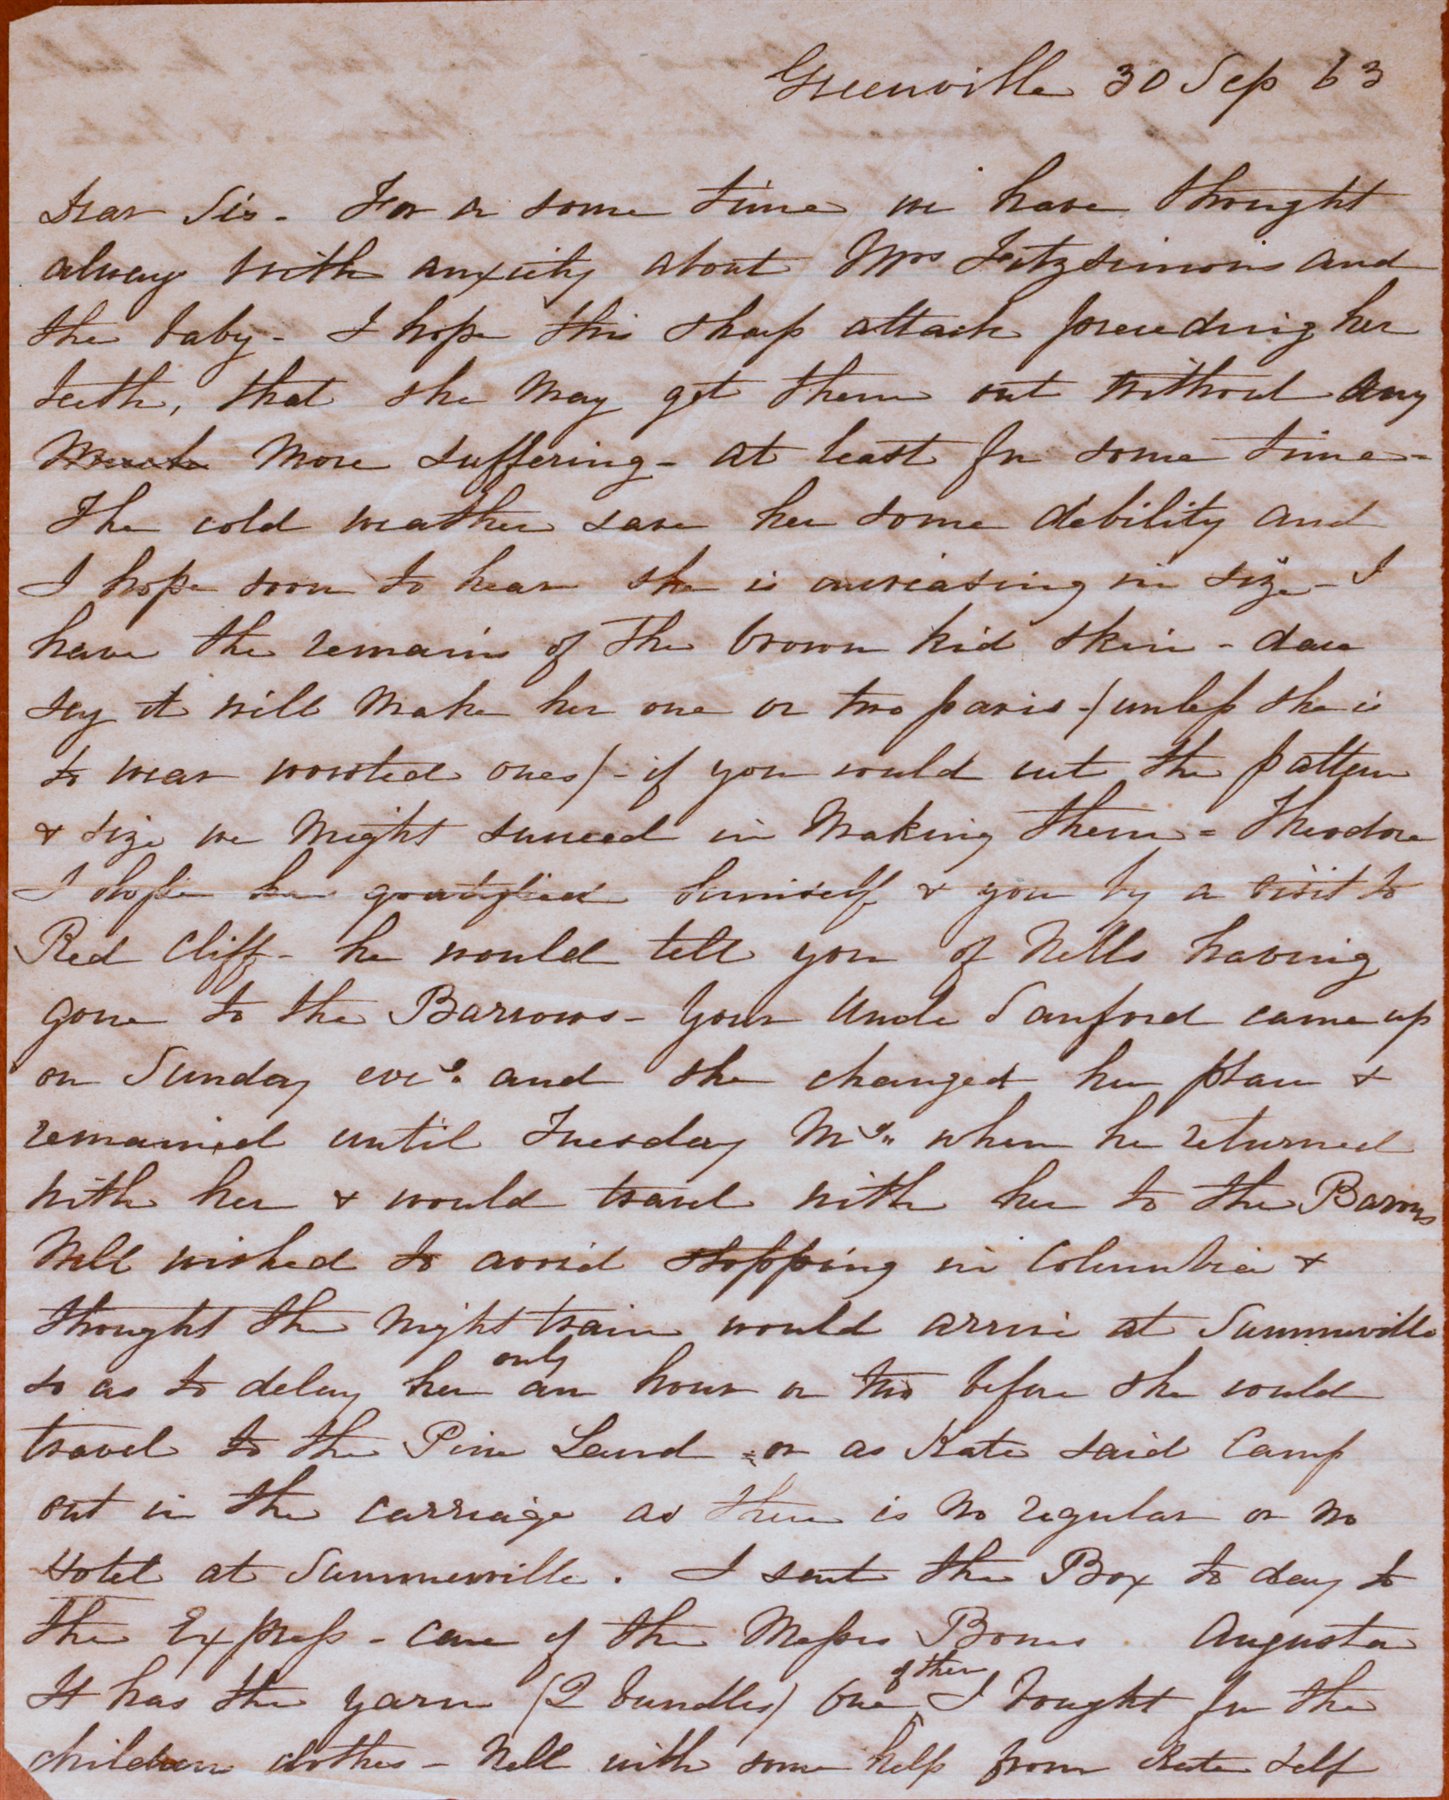 Greenville 30 Sep 63
Dear Sis - For a some time we have thought
alway with anxiety about Mrs Fitzsimons and
the baby - I hope this sharp attack preceeding her
teeth, that she may get them out without any
much more suffering - at least for some time -
The cold weather save her some debility and
I hope soon to hear she is increasing in size - I
have the remains of the brown kid skin - dare
say it will make her one or two pairs - (unless she is
to wear worsted ones) - if you would cut the pattern
& size we might succeed in making them = Theodore
I hope has gratified himself & you by a visit to
Red Cliff - he would tell you of Nells having
gone to the Barrows - Your Uncle Sanford came up
on Sunday eveg. and she changed her plan &
remained until Tuesday Mg. when he returned
with her & would travel with her to the Barrows
Nell wished to avoid stopping in Columbia &
thought the night train would arrive at Summerville
so as to delay her only an hour or two before she could
travel to the Pine Land - or as Kate said Camp
out in the carriage as there is no regular or no
Hotel at Summerville. I sent the Box to day to
the Express - care of the Messrs Bones Augusta
It has the yarn (2 bundles) one of them I bought for the
children clothes - Nell with some help from Kate self